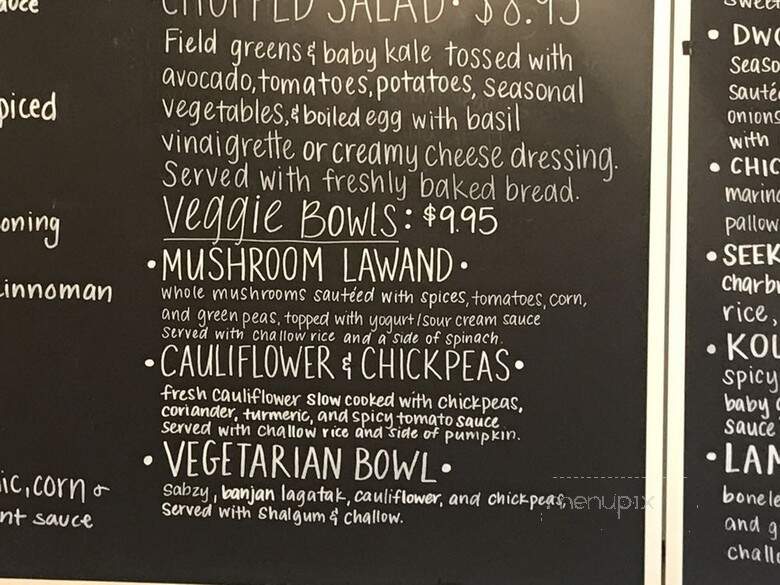 CHOPPED SALAD • $8.95
Field greens & baby kale tossed with
avocado, tomatoes, potatoes, seasonal
vegetables, & boiled egg with basil
vinaigrette or creamy cheese dressing.
Served with freshly baked bread.
Veggie BOWLS: $9.95
• MUSHROOM LAWAND •
whole mushrooms sautéed with spices, tomatoes, corn,
and green peas, topped with yogurt/sour cream sauce
Served with challow rice and a side of spinach.
• CAULIFLOWER & CHICKPEAS •
fresh cauliflower slow cooked with chickpeas,
coriander, turmeric, and spicy tomato sauce
Served with challow rice and side of pumpkin.
• VEGETARIAN BOWL •
Sabzy, banjan lagatak, cauliflower, and chickpeas,
Served with Shalgum & challow.
piced
oning
innoman
ic, corn &
nt sauce
• DWO
Seaso
sauté
onions
with
• CHIC
marin
pallow
• SEEK
charb
rice,
• KOL
spicy
baby
sauce
• LAM
bonele
and g
challo
menupix